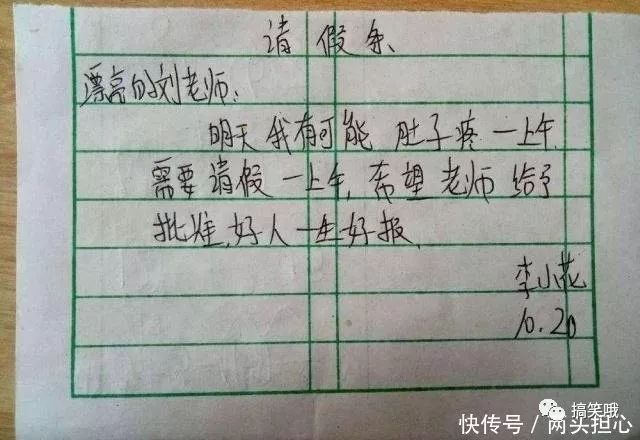 请假条
漂亮的刘老师:
明天我有可能肚子疼一上午
需要请假一上午,希望老师给予
批准,好人一生好报.
李小花
10.20
搞笑哦
快传号 / 两头担心